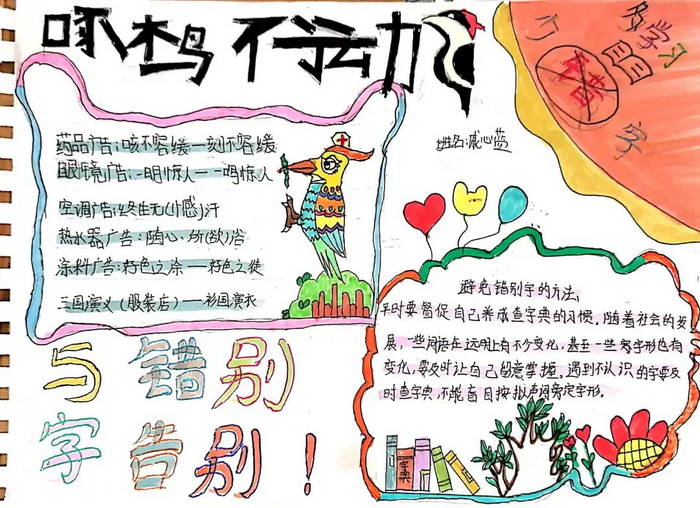 啄木鸟不运动
姓名:戚心蓝
药品广告:咳不容缓一刻不容缓
眼镜广告:一明惊人一一鸣惊人
空调广告:终生无(憾)汗
热水器广告:随心所(欲)浴
涂料广告:好色之涂——好色之徒
三国演义(服装店)——衫国演衣
避免错别字的方法:
平时要督促自己养成查字典的习惯,随着社会的发
展,一些词语在运用上有不少变化,甚至一些
变化,要及时让自己留意掌握,遇到不认识的字要及
时查字典,不能盲目按
与错别
字告别!
学习
字
字典